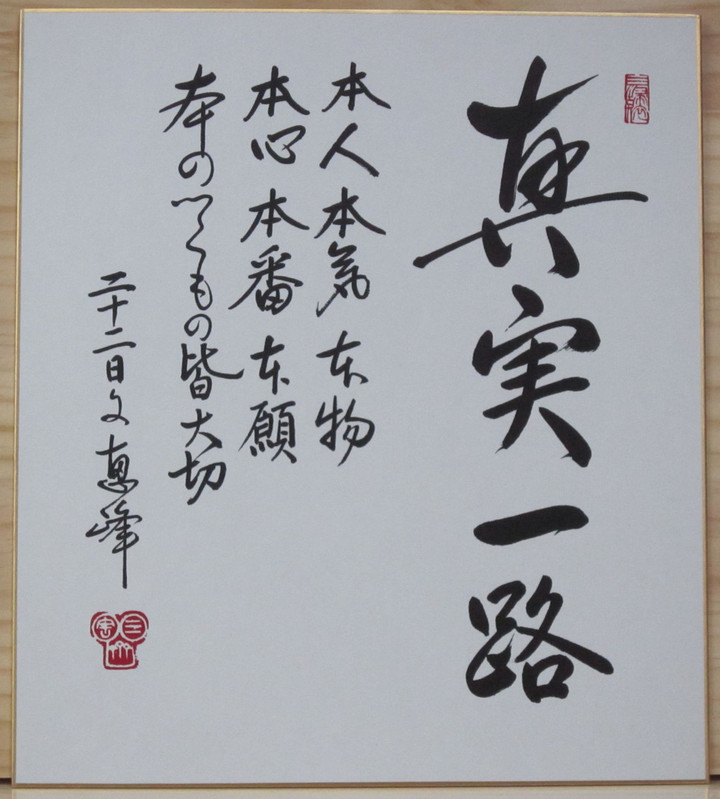 真実一路
本人 本気 本物
本心 本番 本願
本のつくもの皆大切
二十二日 恵峰